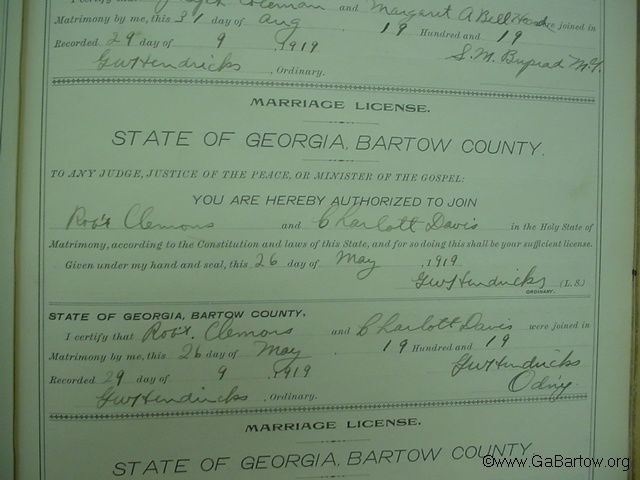 Coleman and Margaret A Bell were joined in
Matrimony by me, this 31 day of Aug 19 Hundred and 19
Recorded 29 day of 9 1919 S. M.
GW Hendricks, Ordinary.
MARRIAGE LICENSE.
STATE OF GEORGIA, BARTOW COUNTY.
TO ANY JUDGE, JUSTICE OF THE PEACE, OR MINISTER OF THE GOSPEL:
YOU ARE HEREBY AUTHORIZED TO JOIN
Robt Clemons and Charlott Davis in the Holy State of
Matrimony, according to the Constitution and laws of this State, and for so doing this shall be your sufficient license.
Given under my hand and seal, this 26 day of May, 1919.
GW Hendricks (L. S.)
ORDINARY.
STATE OF GEORGIA, BARTOW COUNTY.
I certify that Robt. Clemons and Charlott Davis were joined in
Matrimony by me, this 26 day of May 19 Hundred and 19
Recorded 29 day of 9 1919 GW Hendricks
GW Hendricks, Ordinary. Odny
MARRIAGE LICENSE.
STATE OF GEORGIA, BARTOW COUNTY
©www.GaBartow.org